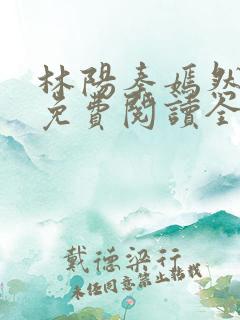 林陽秦嫣然
免費閱讀全
戴德梁行
未經同意禁止轉載